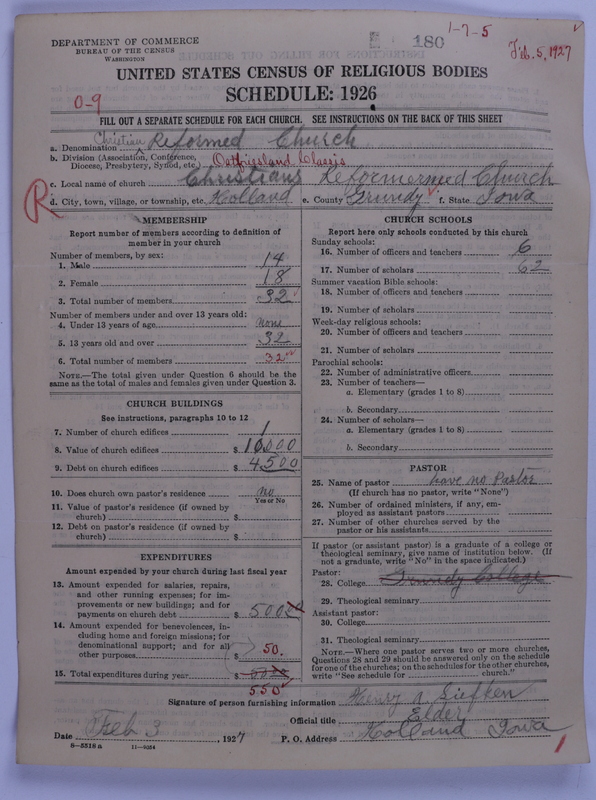 1-7-5
180
Feb. 5, 1927
DEPARTMENT OF COMMERCE
BUREAU OF THE CENSUS
WASHINGTON
UNITED STATES CENSUS OF RELIGIOUS BODIES
SCHEDULE: 1926
0-9
FILL OUT A SEPARATE SCHEDULE FOR EACH CHURCH. SEE INSTRUCTIONS ON THE BACK OF THIS SHEET
a. Denomination Christian Reformed Church
b. Division (Association, Conference, Diocese, Presbytery, Synod, etc.) Ostfriesland Classis
c. Local name of church Christians Reformermed Church
R
d. City, town, village, or township, etc. Holland e. County Grundy f. State Iowa
MEMBERSHIP
Report number of members according to definition of
member in your church
Number of members, by sex:
1. Male 14
2. Female 18
3. Total number of members 32
Number of members under and over 13 years old:
4. Under 13 years of age none
5. 13 years old and over 32
6. Total number of members 32
NOTE.—The total given under Question 6 should be the
same as the total of males and females given under Question 3.
CHURCH BUILDINGS
See instructions, paragraphs 10 to 12
7. Number of church edifices 1
8. Value of church edifices $ 10,000
9. Debt on church edifices $ 4500
10. Does church own pastor's residence no
Yes or No
11. Value of pastor's residence (if owned by
church) $
12. Debt on pastor's residence (if owned by
church) $
EXPENDITURES
Amount expended by your church during last fiscal year
13. Amount expended for salaries, repairs,
and other running expenses; for im-
provements or new buildings; and for
payments on church debt $ 500
14. Amount expended for benevolences, in-
cluding home and foreign missions; for
denominational support; and for all
other purposes $ 50.
15. Total expenditures during year $
550
CHURCH SCHOOLS
Report here only schools conducted by this church
Sunday schools:
16. Number of officers and teachers 6
17. Number of scholars 62
Summer vacation Bible schools:
18. Number of officers and teachers
19. Number of scholars
Week-day religious schools:
20. Number of officers and teachers
21. Number of scholars
Parochial schools:
22. Number of administrative officers
23. Number of teachers—
a. Elementary (grades 1 to 8)
b. Secondary
24. Number of scholars—
a. Elementary (grades 1 to 8)
b. Secondary
PASTOR
25. Name of pastor have no Pastor
(If church has no pastor, write "None")
26. Number of ordained ministers, if any, em-
ployed as assistant pastors
27. Number of other churches served by the
pastor or his assistants
If pastor (or assistant pastor) is a graduate of a college or
theological seminary, give name of institution below. (If
not a graduate, write "No" in the space indicated.)
Pastor:
28. College Grundy College
29. Theological seminary
Assistant pastor:
30. College
31. Theological seminary
NOTE.—Where one pastor serves two or more churches,
Questions 28 and 29 should be answered only on the schedule
for one of the churches; on the schedules for the other churches,
write "See schedule for church."
Signature of person furnishing information Henry A Siefken
Official title Elder
Date Feb 3 1927 P. O. Address Holland Iowa
8-5518a 11-9034